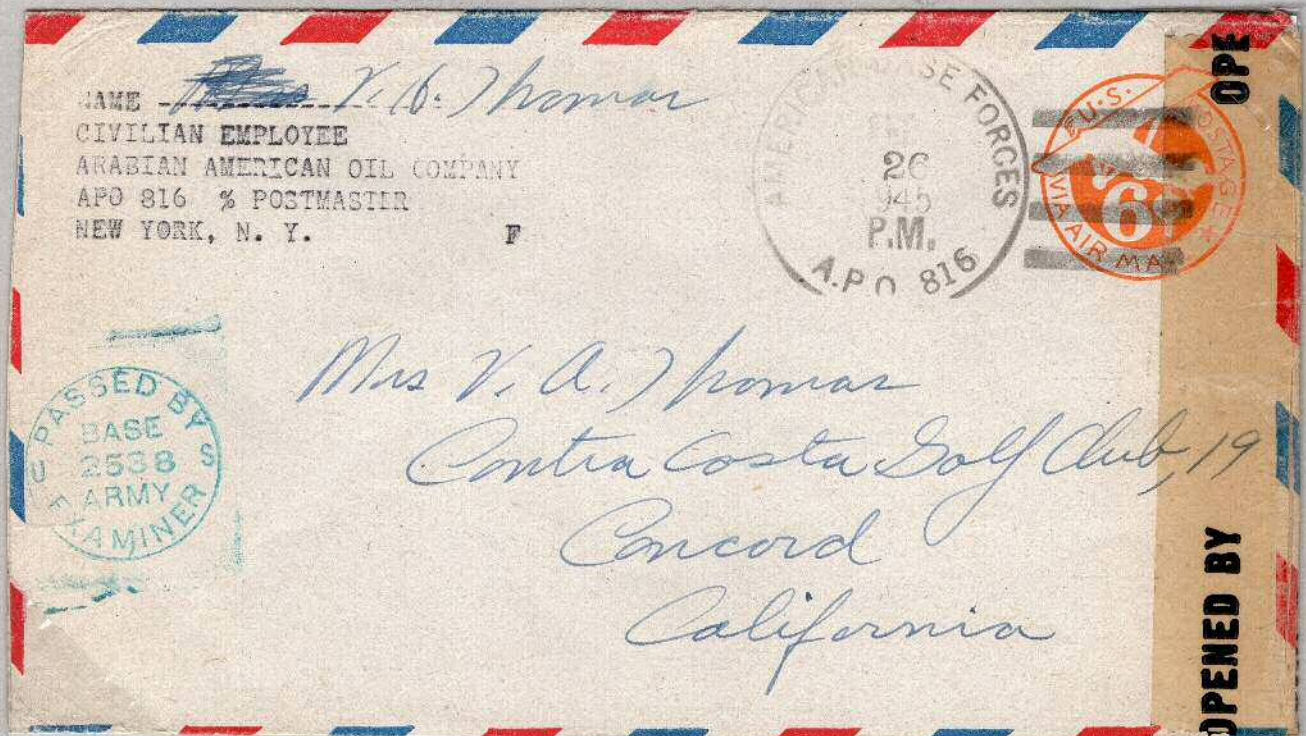 NAME V. A. Thomas
CIVILIAN EMPLOYEE
ARABIAN AMERICAN OIL COMPANY
APO 816 % POSTMASTER
NEW YORK, N. Y. F
SE FORCES
26
945
P.M.
A.P.O. 816
U.S. POSTAGE
6¢
VIA AIR MA
OPE
OPENED BY
PASSED BY
BASE
2538
ARMY
EXAMINER
U S
Mrs V. A. Thomas
Contra Costa Golf Club, 19
Concord
California